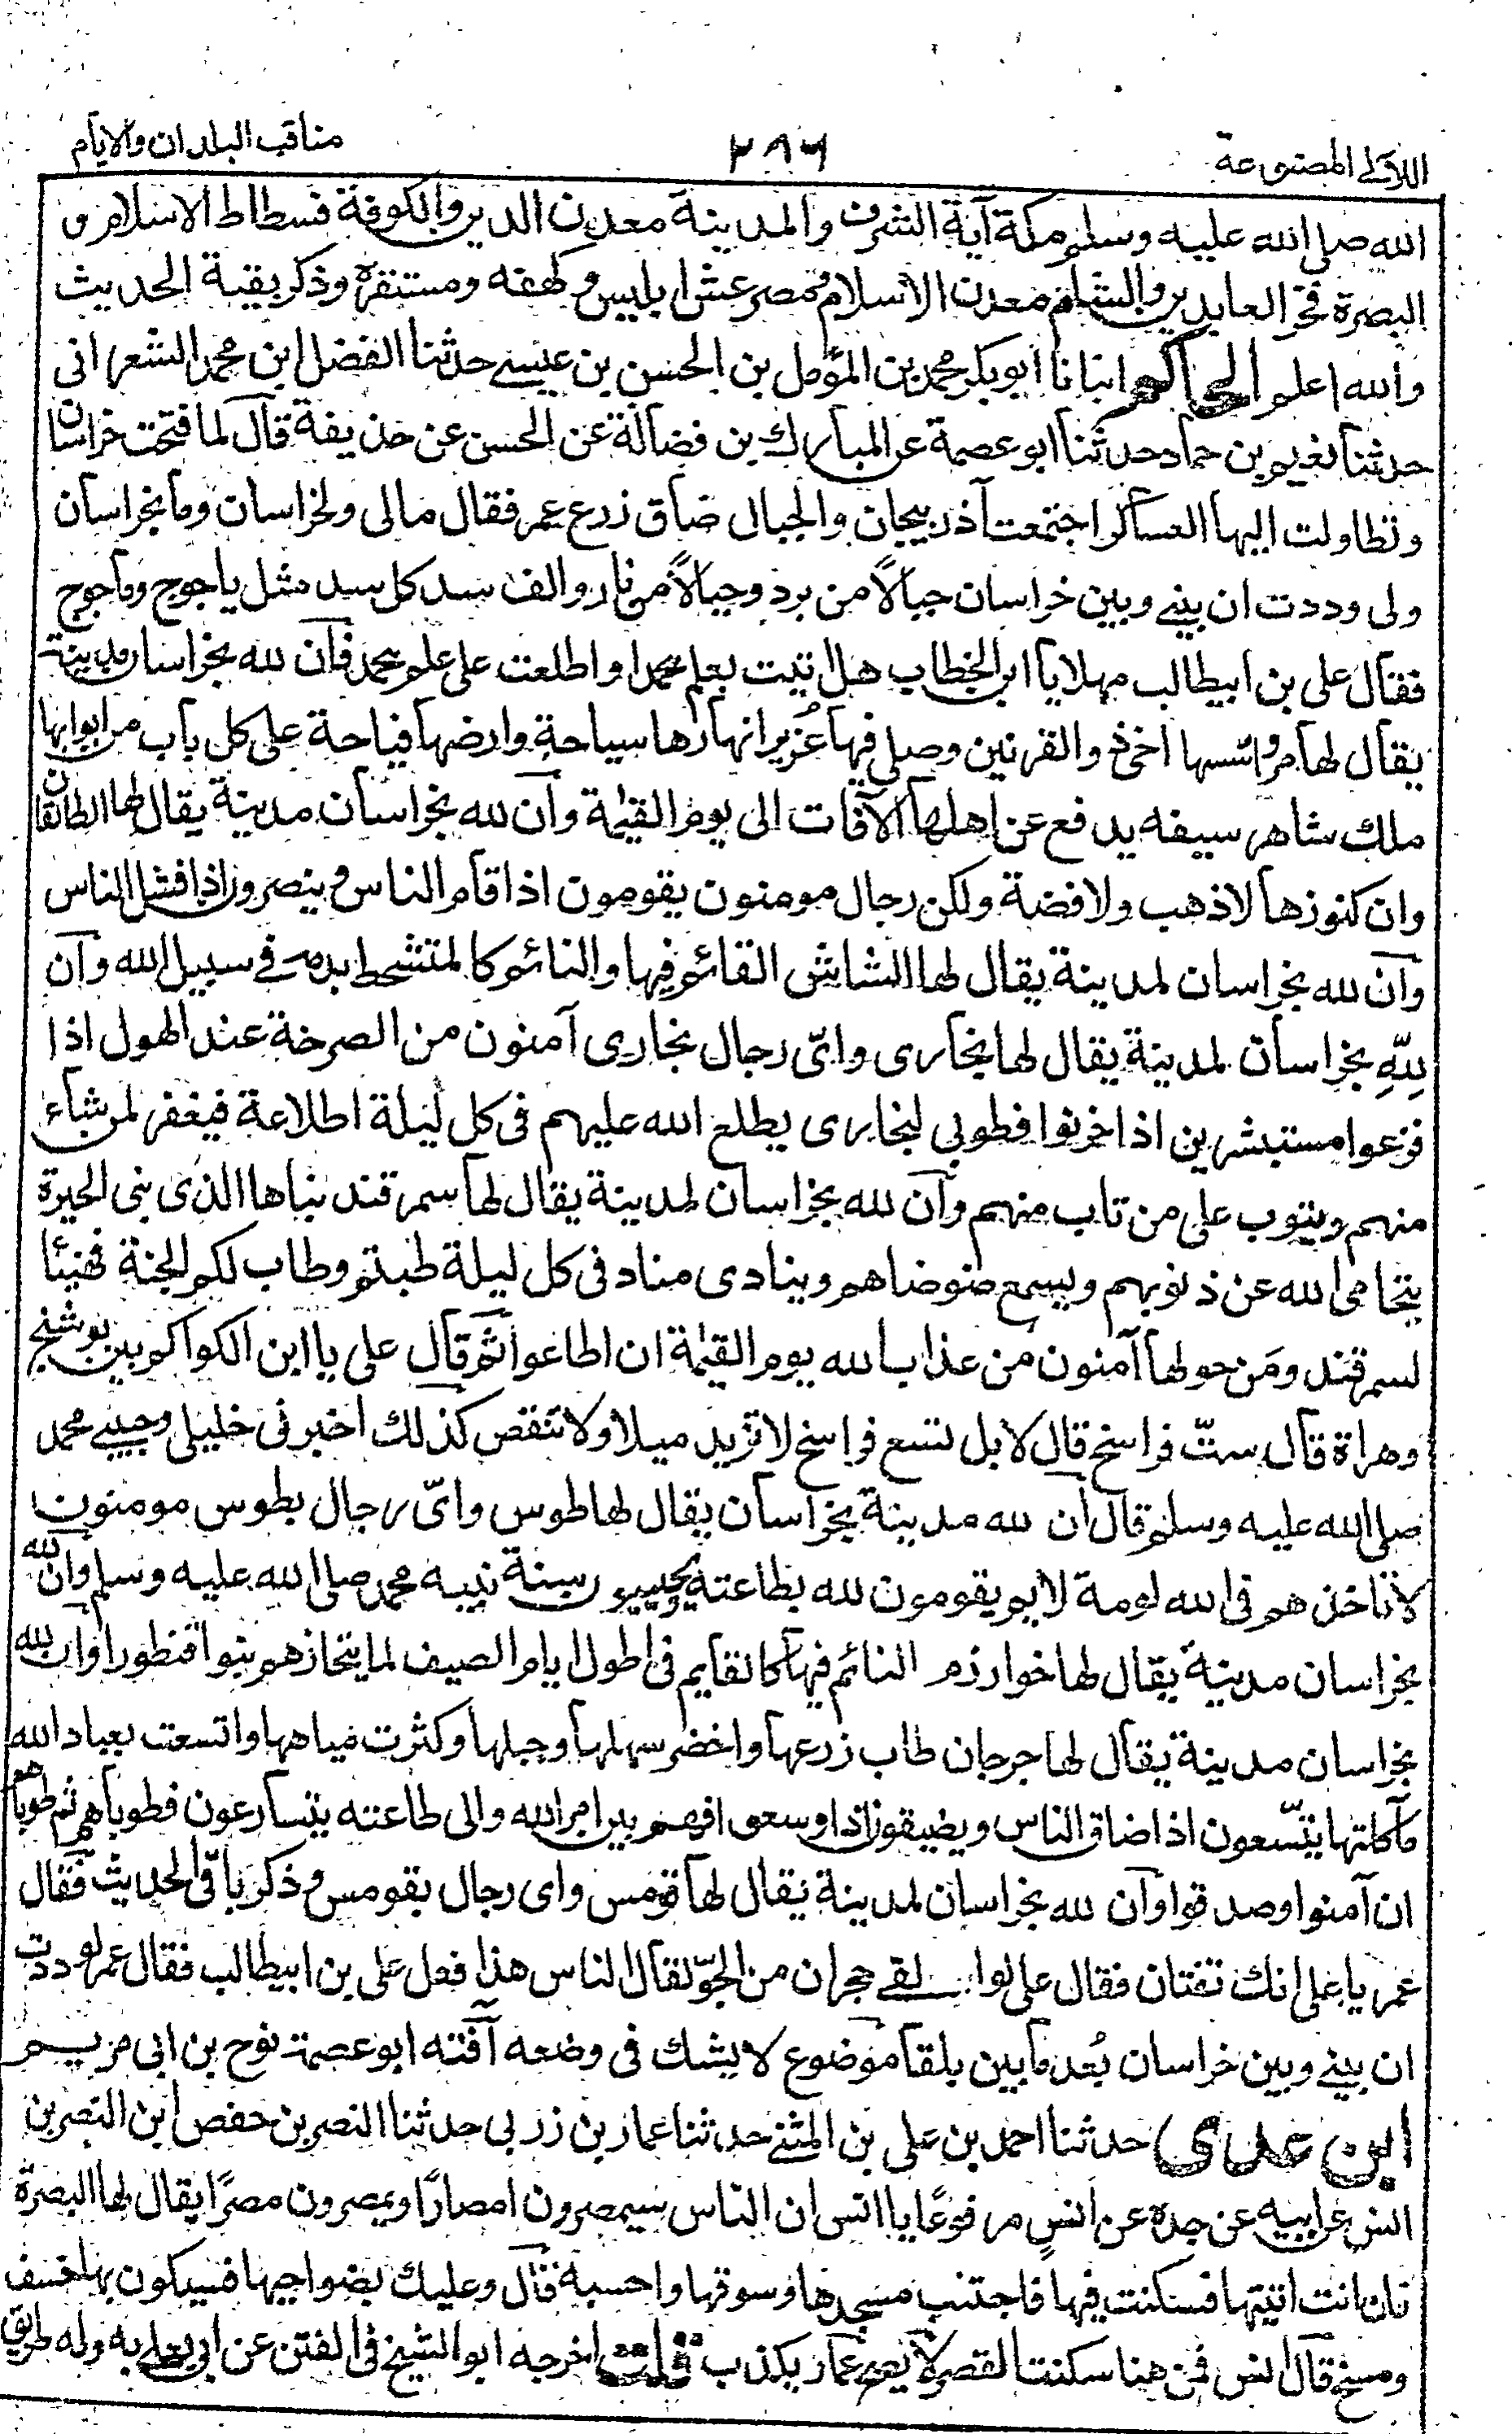 اللآلى المصنوعة
٢٨٦
مناقب البلدان والايام
الله صلى الله عليه وسلم مكة آية الشرف والمدينة معدن الدين والكوفة فسطاط الاسلام و
البصرة فخر العابدين والشام معدن الاسلام ومصر عش ابليس وكهفه ومستقره وذكر بقية الحديث
والله اعلم الحاكم انبانا ابو بكر محمد بن المؤمل بن الحسن بن عيسى حدثنا الفضل ابن محمد الشعرانى
حدثنا نعيم بن حماد حدثنا ابو عصمة عن المبارك بن فضالة عن الحسن عن حذيفة قال لما فتحت خراسان
وتطاولت اليها العساكر اجتمعت آذربيجان والجبال ضاق ذرع عمر فقال مالى ولخراسان وما بخراسان
ولى وددت ان بينى وبين خراسان جبالاً من برد وجبالاً من نار والف سد كل سد مثل ياجوج وماجوج
فقال على بن ابيطالب مهلا يا ابن الخطاب هل اتيت بعلم محمد او اطلعت على علم محمد فان لله بخراسان مدينة
يقال لها مرو اسسها اخى ذو القرنين وصلى فيها عُزير انهارها سياحة وارضها فياحة على كل باب من ابوابها
ملك شاهر سيفه يدفع عن اهلها الآفات الى يوم القيمة وان لله بخراسان مدينة يقال لها الطالقان
وان كنوزها لا ذهب ولا فضة ولكن رجال مومنون يقومون اذا قام الناس وينصرون اذا فشل الناس
وان لله بخراسان لمدينة يقال لها الشاش القائم فيها والنائم كالمتشحط بدمه فى سبيل الله وان
لِلّهِ بخراسان لمدينة يقال لها بخارى واىّ رجال بخارى آمنون من الصرخة عند الهول اذا
فزعوا مستبشرين اذا حزنوا فطوبى لبخارى يطلع الله عليهم فى كل ليلة اطلاعة فيغفر لمن شاء
منهم ويتوب على من تاب منهم وان لله بخراسان لمدينة يقال لها سمرقند بناها الذى بنى الحيرة
يتحامى الله عن ذنوبهم ويسمع ضوضاهم وينادى مناد فى كل ليلة طبتم وطاب لكم الجنة فهنيئا
لسمرقند ومَن حولها آمنون من عذاب الله يوم القيمة ان اطاعوا ثم قال على يا ابن الكوا كم بين بوشنج
وهراة قال ستّ فراسخ قال لا بل تسع فراسخ لا تزيد ميلا ولا تنقص كذلك اخبرنى خليلى وحبيبى محمد
صلى الله عليه وسلم قال ان لله مدينة بخراسان يقال لها طوس واىّ رجال بطوس مومنون
لا تاخذهم فى الله لومة لايم يقومون لله بطاعته ويحييون سنة نبيه محمد صلى الله عليه وسلم وان لله
بخراسان مدينة يقال لها خوارزم النائم فيها كالقايم فى اطول ايام الصيف لما يتحازهم بنوا قنطورا وان لله
بخراسان مدينة يقال لها جرجان طاب زرعها واخضر سهلها وجبلها وكثرت مياهها واتسعت بعباد الله
ماكلتها يتّسعون اذا ضاق الناس ويضيقون اذا وسعوا فهم بين امر الله والى طاعته يتسارعون فطوباهم ثم طوباهم
ان آمنوا وصدقوا وان لله بخراسان لمدينة يقال لها قومس واى رجال بقومس وذكر باقى الحديث فقال
عمر يا على انك تفتان فقال على لو القى حجران من الجوّ لقال الناس هذا فعل على بن ابيطالب فقال عمر لوددت
ان بينى وبين خراسان بُعد ما بين بلقا موضوع لا يشك فى وضعه آفته ابو عصمة نوح بن ابى مريم
ابن عدى حدثنا احمد بن على بن المثنى حدثنا عمار بن زربى حدثنا النصر بن حفص ابن النصر بن
انس عن ابيه عن جده عن انسٍ مرفوعًا يا انس ان الناس سيمصرون امصارًا ويمصرون مصرًا يقال لها البصرة
فان انت اتيتها فسكنت فيها فاجتنب مسجدها وسوقها واحسبه قال وعليك بضواحيها فسيكون بها خسف
ومسخ قال انس فمن هنا سكنت القصر لا يصح عمار يكذب قلت اخرجه ابو الشيخ فى الفتن عن ابى يعلى به وله طريق